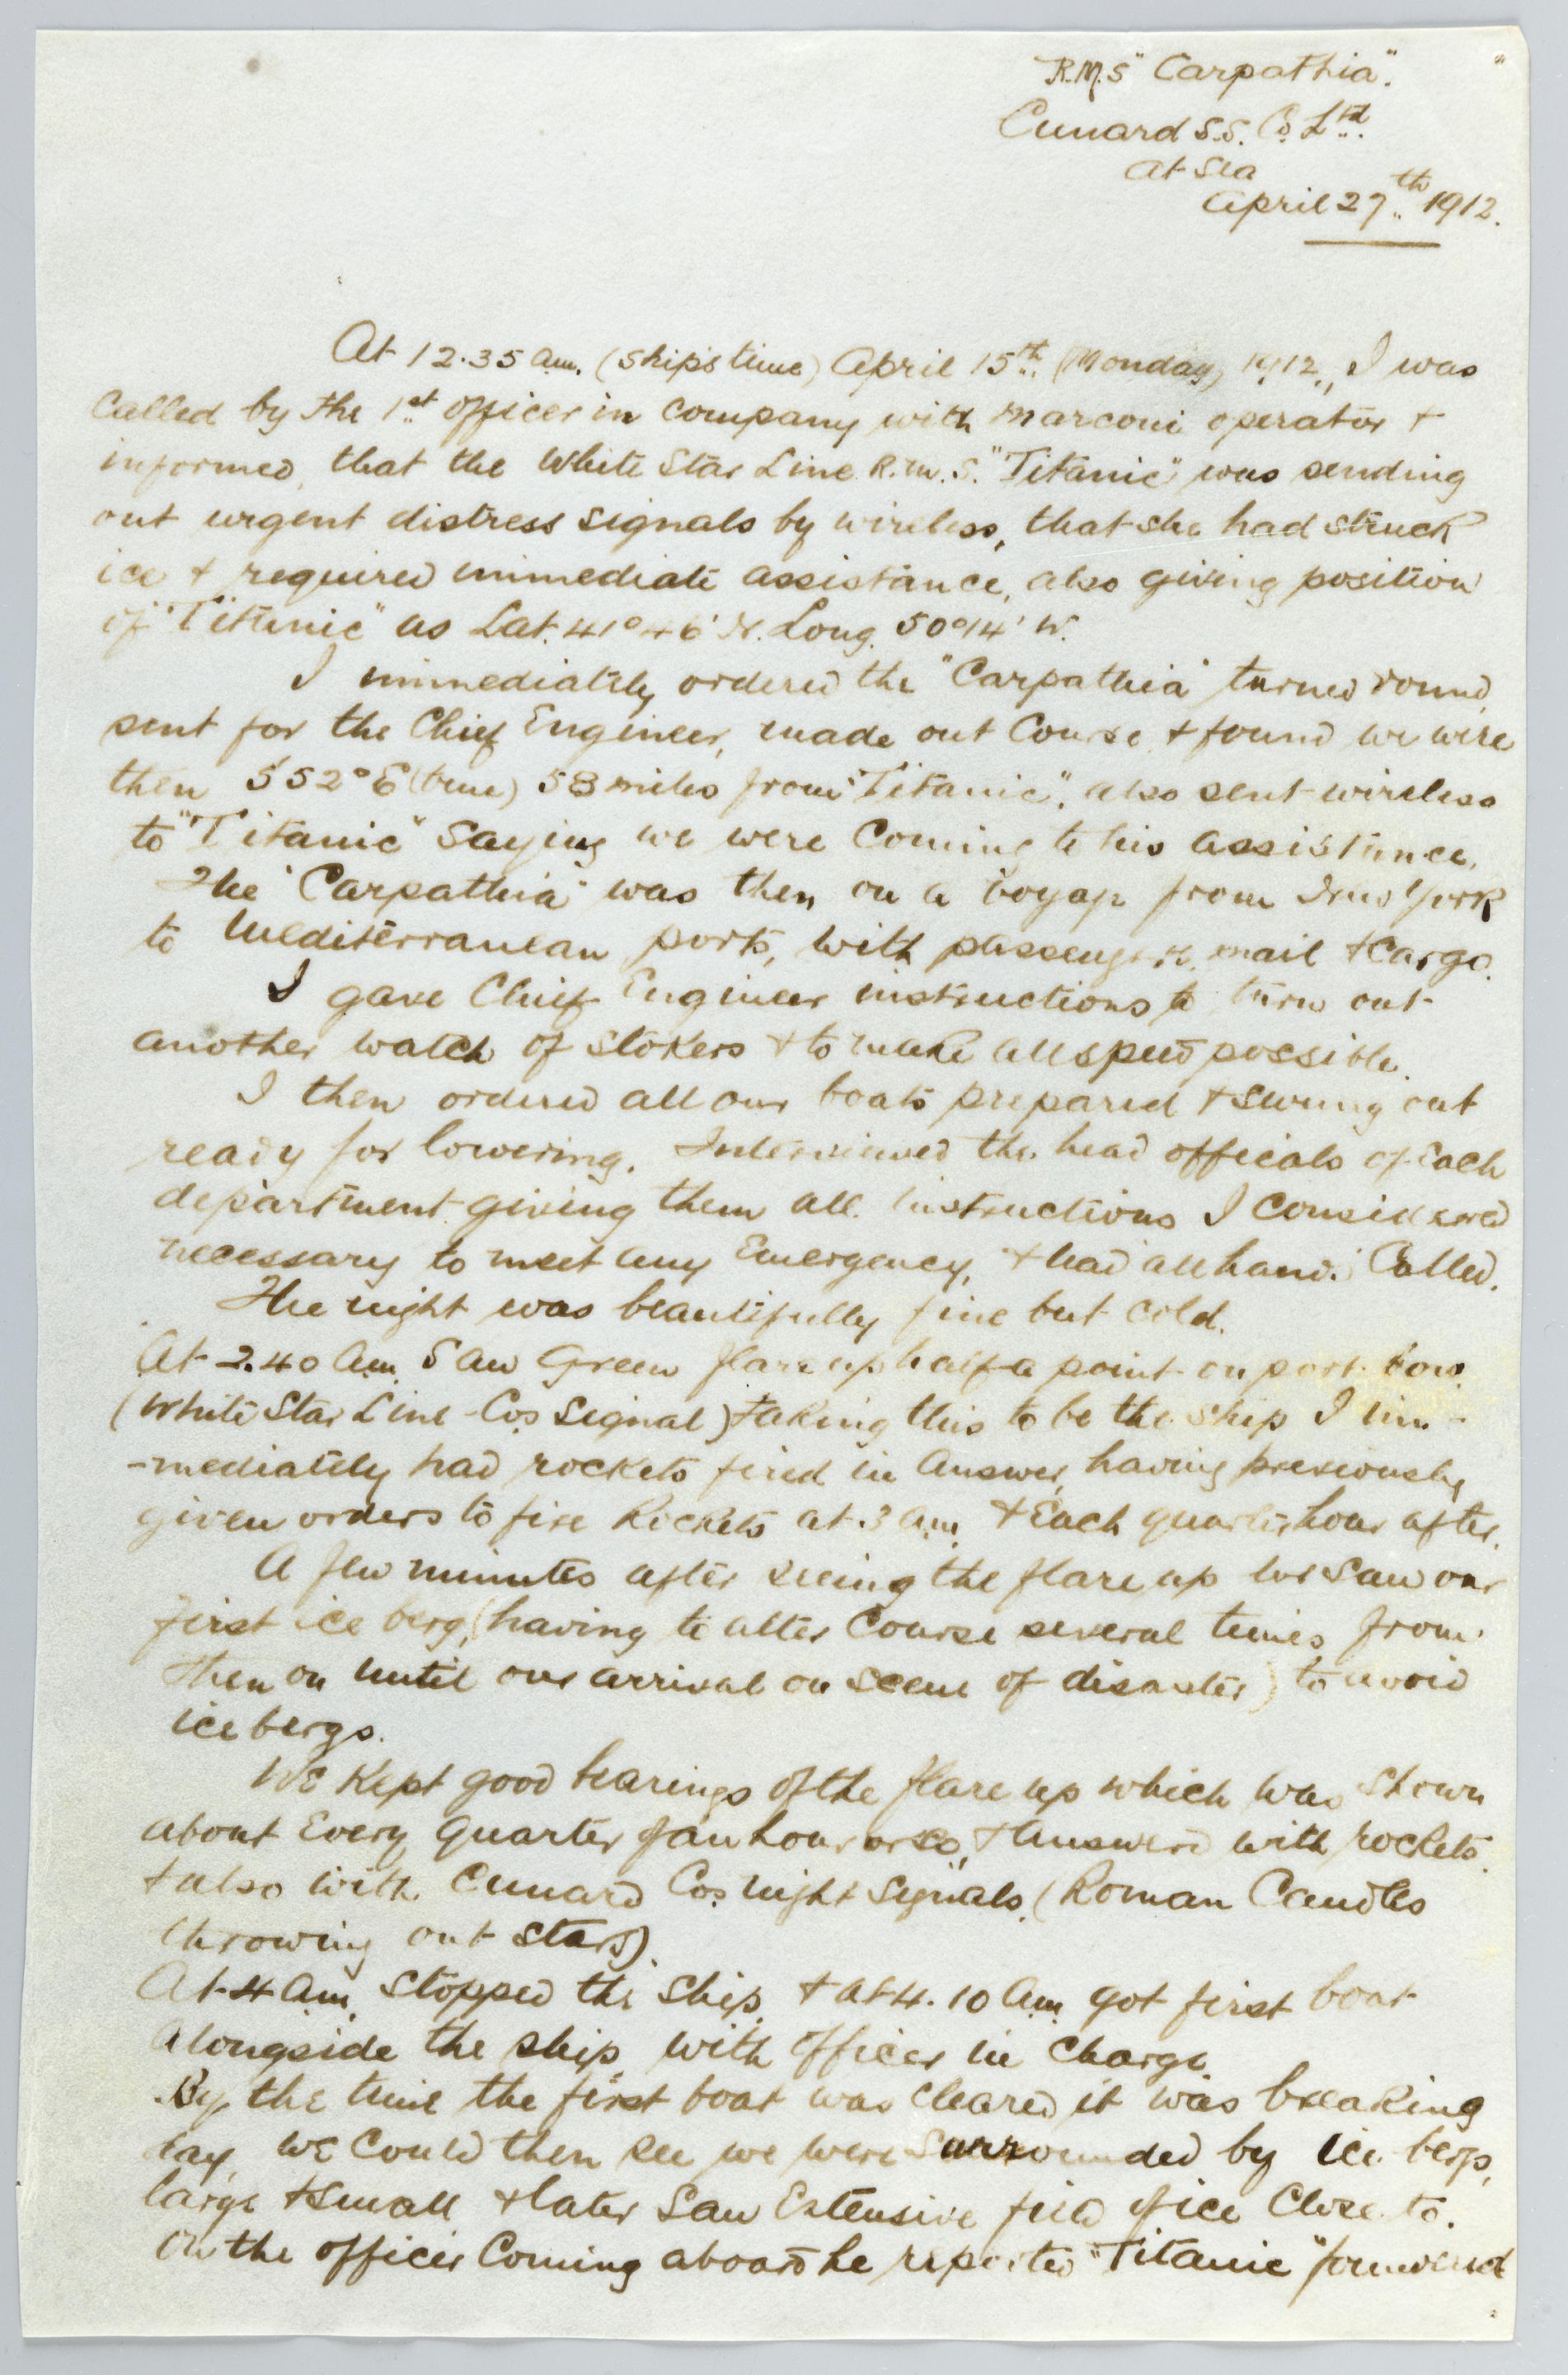 R.M.S "Carpathia".
Cunard S.S. Co. Ltd.
at Sea
April 27th 1912.
At 12.35 am. (ship's time) April 15th (Monday) 1912, I was
called by the 1st officer in company with Marconi operator +
informed, that the White Star Line R.M.S. "Titanic" was sending
out urgent distress signals by wireless, that she had struck
ice + required immediate assistance, also giving position
of "Titanic" as Lat. 41° 46' N. Long. 50° 14' W.
I immediately ordered the "Carpathia" turned round,
sent for the Chief Engineer, made out Course, + found we were
then S52°E (true) 58 miles from "Titanic", also sent wireless
to "Titanic" saying we were coming to his assistance.
The "Carpathia" was then on a voyage from New York
to Mediterranean ports, with passengers, mail + Cargo.
I gave Chief Engineer instructions to turn out
another watch of stokers + to make all speed possible.
I then ordered all our boats prepared + swung out
ready for lowering. Interviewed the head officals of each
department giving them all instructions I considered
necessary to meet any Emergency, + had all hands Called.
The night was beautifully fine but cold.
At 2.40 am. Saw Green flare up half a point on port bow
(White Star Line Cos Signal) taking this to be the ship I im-
-mediately had rockets fired in answer, having previously
given orders to fire Rockets at 3 am. + Each quarter hour after.
A few minutes after seeing the flare up we saw our
first ice berg, (having to alter Course several times from
then on until our arrival on scene of disaster) to avoid
ice bergs.
We Kept good bearings of the flare up which was shown
about Every Quarter of an hour or so, + Answered with rockets
+ also with Cunard Cos night signals, (Roman Candles
throwing out stars).
At 4 am. Stopped the ship, + at 4.10 am got first boat
alongside the ship, with officer in Charge.
By the time the first boat was cleared it was breaking
day, we could then see we were surrounded by ice bergs,
large + small + later Saw Extensive field of ice Close to.
On the officer Coming aboard he reported "Titanic" foundered